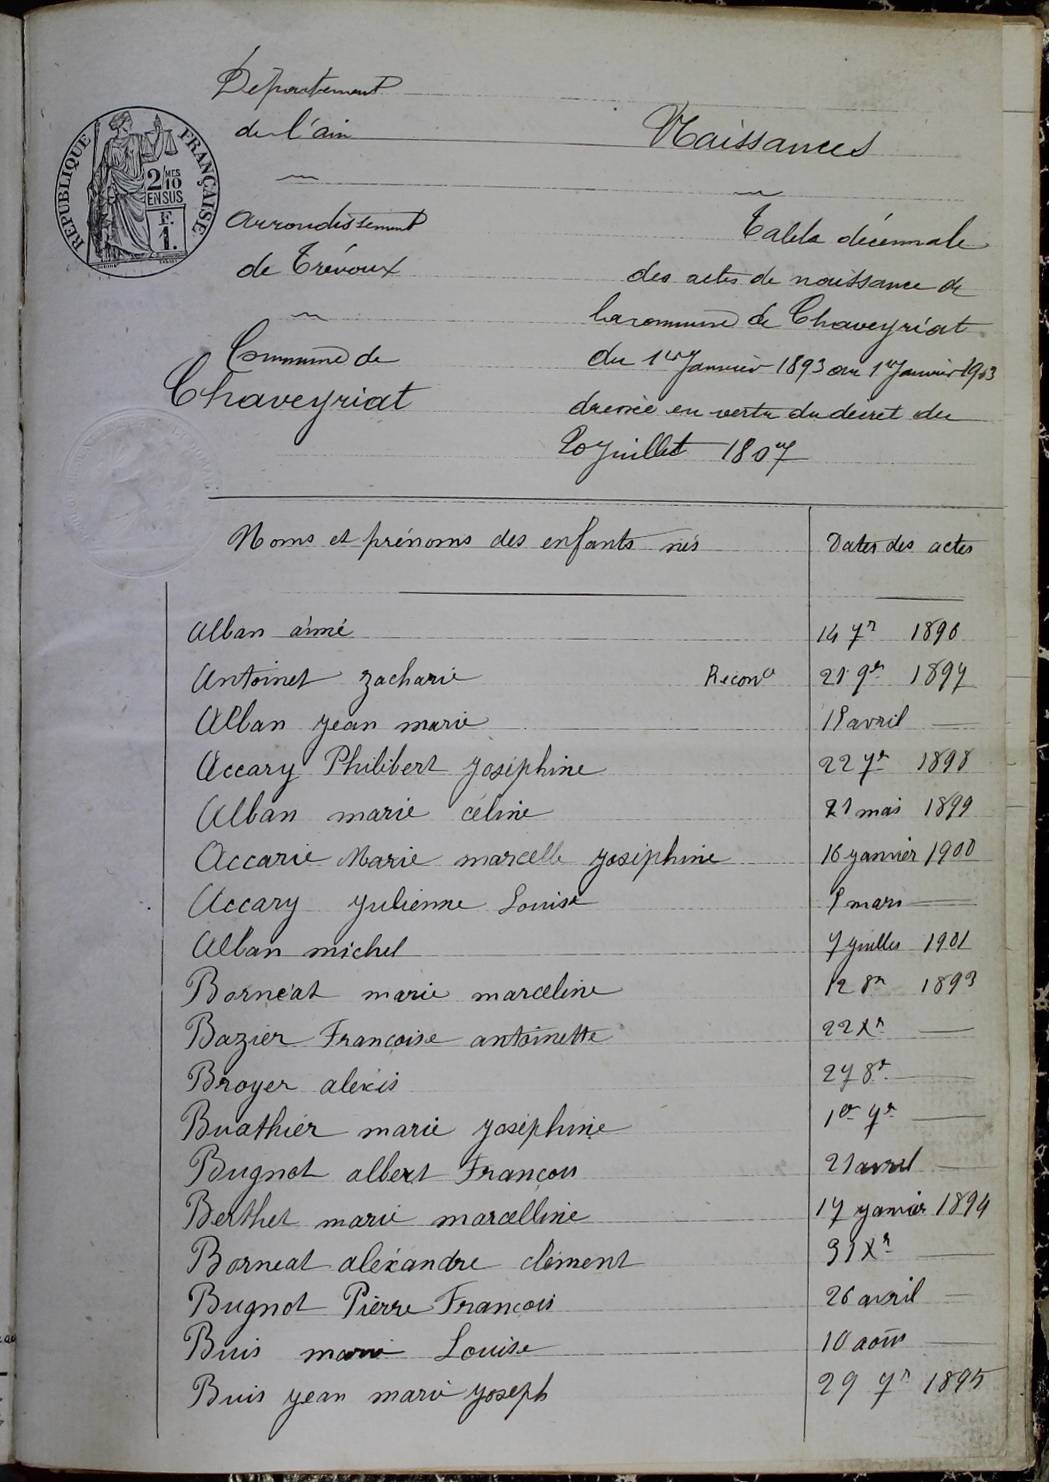 Département
de l'ain
Naissances
RÉPUBLIQUE FRANÇAISE
2/10 MES
EN SUS
F.
1.
arrondissement
de Trévoux
Commune de
Chaveyriat
Table décennale
des actes de naissance de
la commune de Chaveyriat
du 1er Janvier 1893 au 1er Janvier 1903
dressée en vertu du décret du
20 Juillet 1807
Noms et prénoms des enfants nés Dates des actes
Alban aimé 14 7r 1896
Antoinet zacharie Recon 21 9r 1897
Alban jean marie 18 avril —
Accary Philibert joséphine 22 7r 1898
Alban marie céline 21 mai 1899
Accarie Marie marcelle joséphine 16 janvier 1900
Accary julienne Louise 8 mars —
Alban michel 7 juillet 1901
Bornéat marie marceline 12 8r 1893
Bazier Francoise antoinette 22 Xr —
Broyer alexis 27 8r —
Buathier marie joséphine 1er 7r —
Bugnot albert François 21 avril —
Berthet marie marcelline 17 janvier 1894
Borneat aléxandre clément 31 Xr —
Bugnot Pierre François 26 avril —
Buis marie Louise 10 août —
Buis jean marie joseph 29 7r 1895